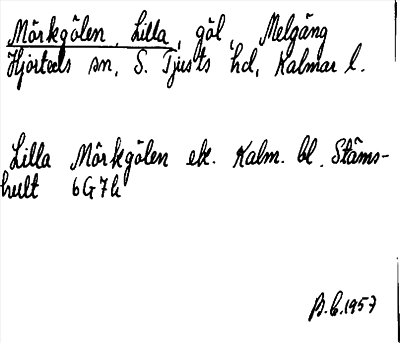 Mörkgölen, Lilla, göl, Melgäng
Hjorteds sn, S. Tjusts hd, Kalmar l.
Lilla Mörkgölen ek. Kalm. bl. Stäms-
hult 6G7h
B.C.1957